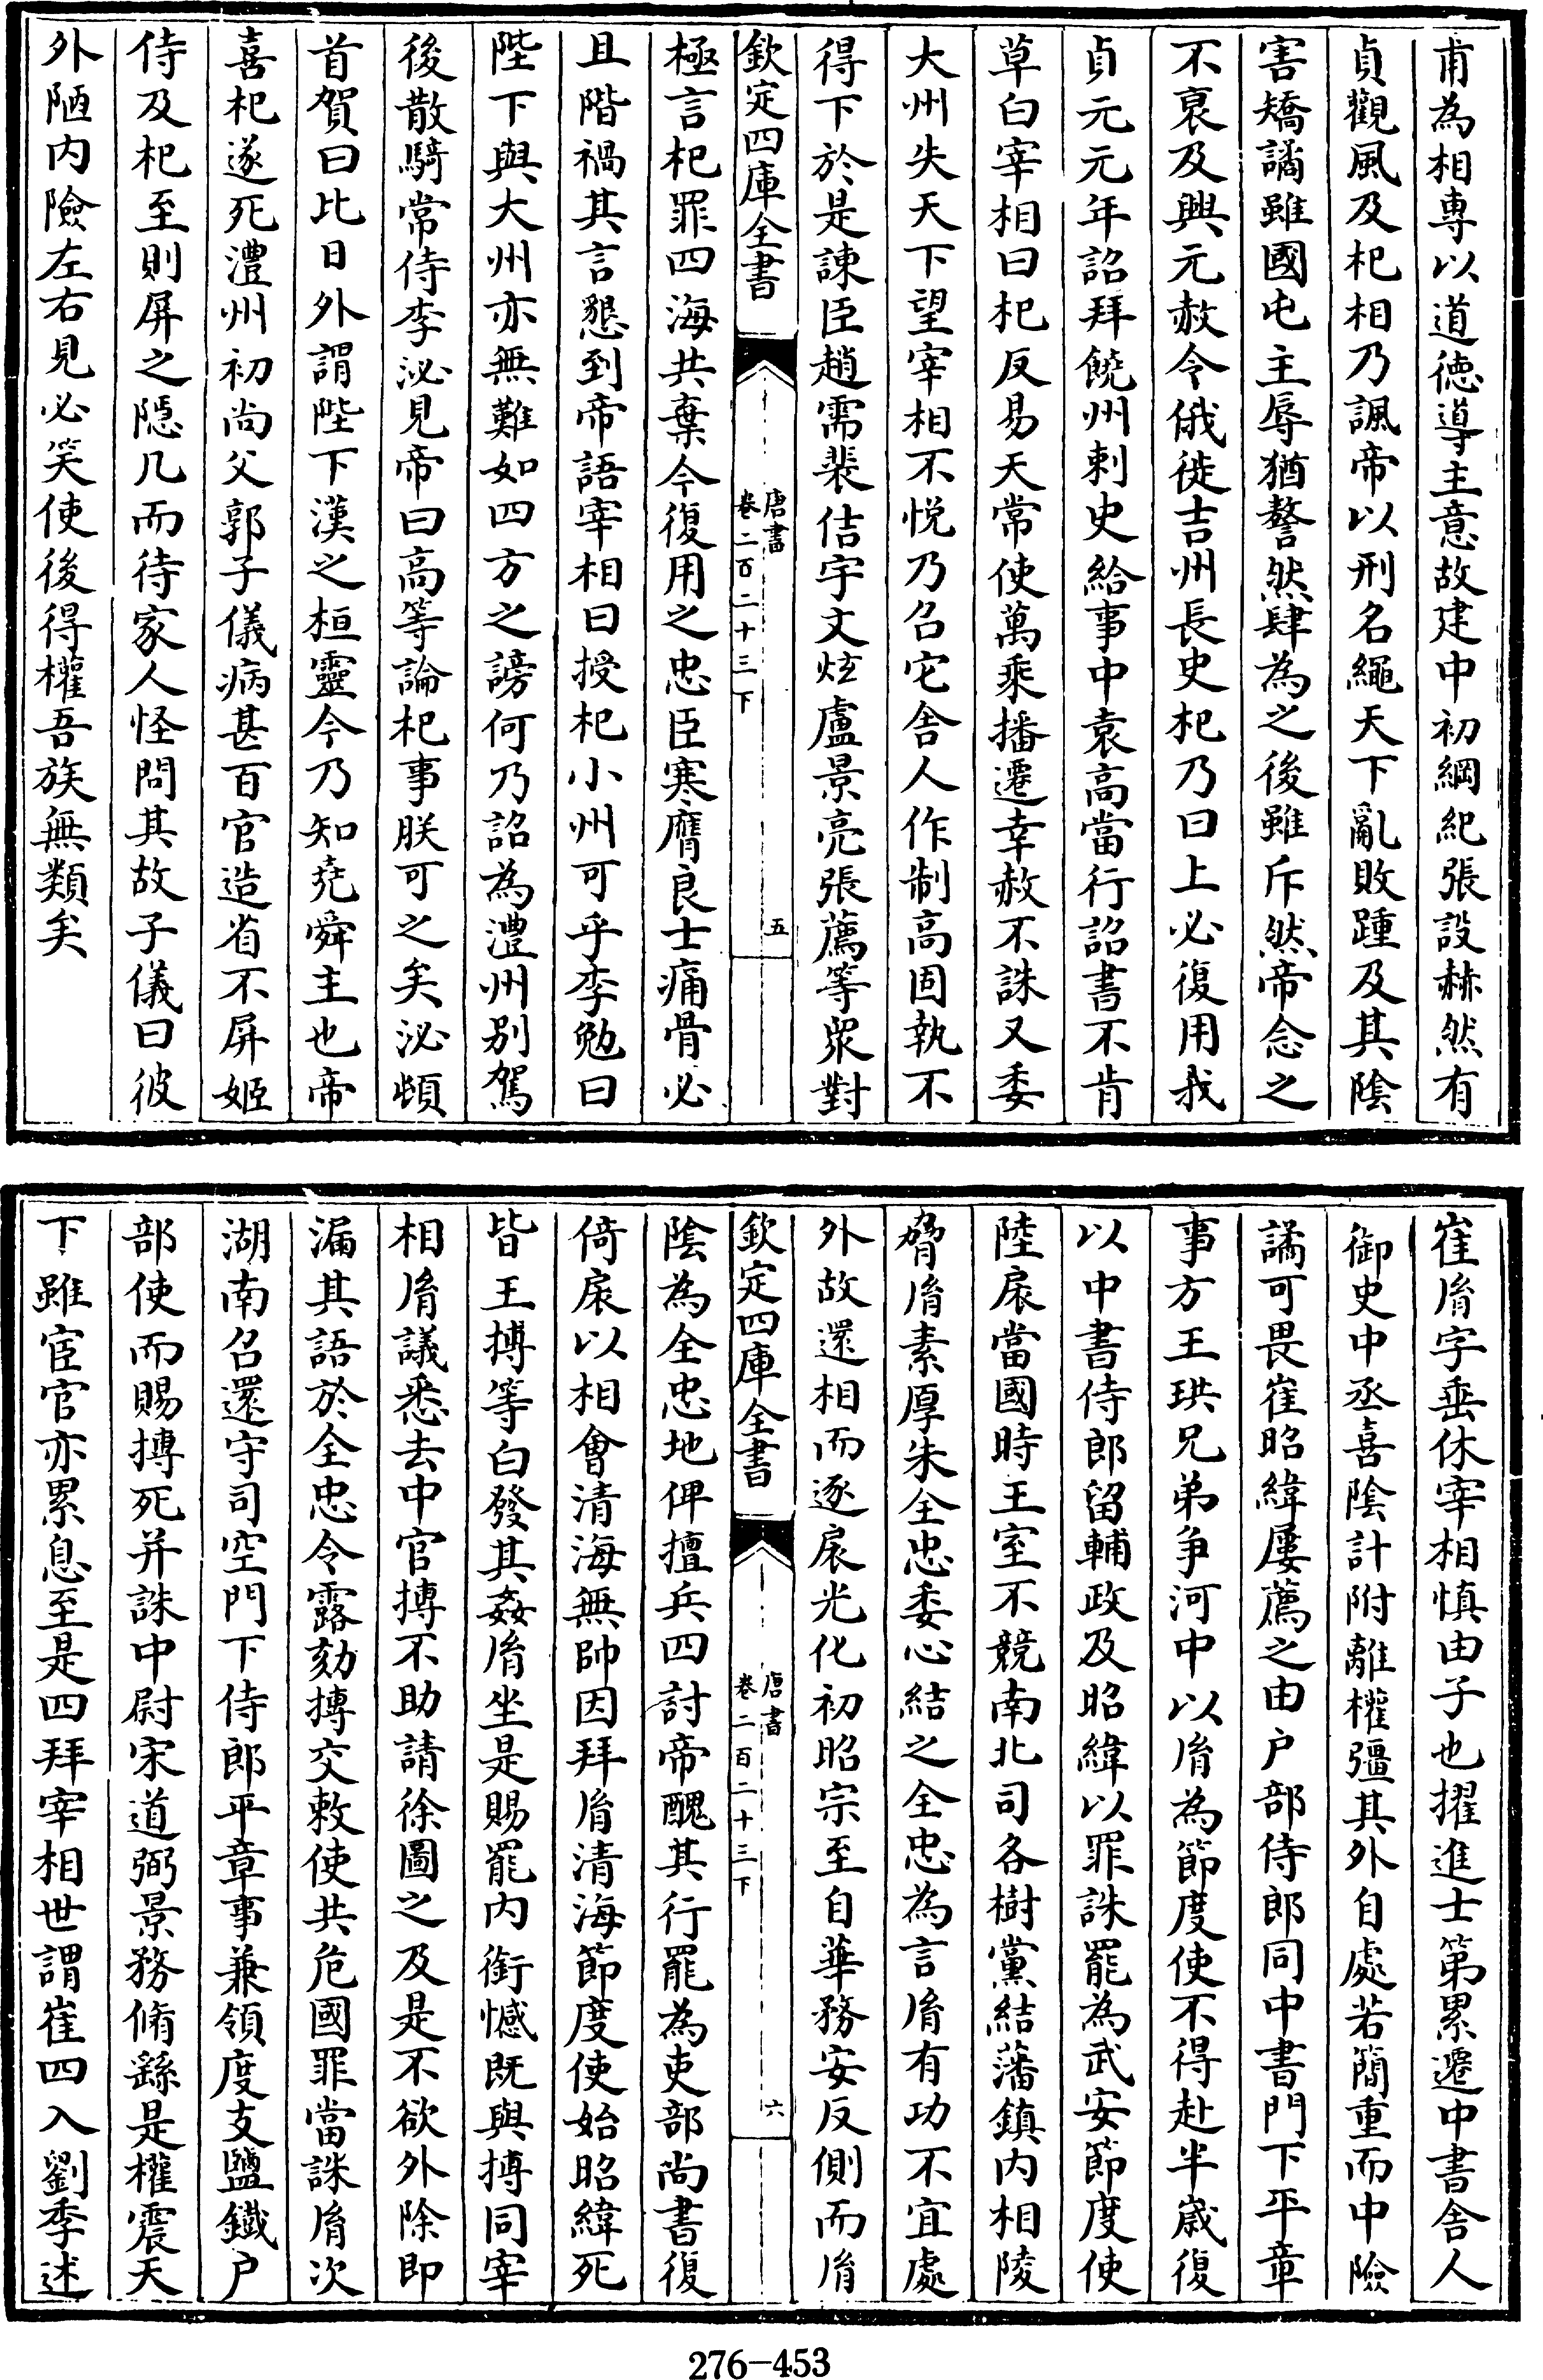 甫為相專以道徳導主意故建中初綱紀張設赫然有
貞觀風及杞相乃諷帝以刑名繩天下亂敗踵及其陰
害矯譎雖國屯主辱猶謷然肆為之後雖斥然帝念之
不衰及興元赦令俄徙吉州長史杞乃曰上必復用我
貞元元年詔拜饒州刺史給事中袁高當行詔書不肯
草白宰相曰杞反易天常使萬乘播遷幸赦不誅又委
大州失天下望宰相不悦乃召它舍人作制高固執不
得下於是諫臣趙需裴佶宇文炫盧景亮張薦等衆對
欽定四庫全書
唐書
卷二百二十三下
五
極言杞罪四海共棄今復用之忠臣寒膺良士痛骨必
且階禍其言懇到帝語宰相曰授杞小州可乎李勉曰
陛下與大州亦無難如四方之謗何乃詔為澧州别駕
後散騎常侍李泌見帝曰高等論杞事朕可之矣泌頓
首賀曰比日外謂陛下漢之桓靈今乃知堯舜主也帝
喜杞遂死澧州初尚父郭子儀病甚百官造省不屏姬
侍及杞至則屏之隠几而待家人怪問其故子儀曰彼
外陋内險左右見必笑使後得權吾族無類矣
崔胤字垂休宰相慎由子也擢進士第累遷中書舍人
御史中丞喜陰計附離權彊其外自處若簡重而中險
譎可畏崔昭緯屢薦之由户部侍郎同中書門下平章
事方王珙兄弟争河中以胤為節度使不得赴半歲復
以中書侍郎留輔政及昭緯以罪誅罷為武安節度使
陸扆當國時王室不競南北司各樹黨結藩鎮内相陵
脅胤素厚朱全忠委心結之全忠為言胤有功不宜處
外故還相而逐扆光化初昭宗至自華務安反側而胤
欽定四庫全書
唐書
卷二百二十三下
六
陰為全忠地俾擅兵四討帝醜其行罷為吏部尚書復
倚扆以相會清海無帥因拜胤清海節度使始昭緯死
皆王摶等白發其姦胤坐是賜罷内銜憾既與摶同宰
相胤議悉去中官摶不助請徐圖之及是不欲外除即
漏其語於全忠令露劾摶交敕使共危國罪當誅胤次
湖南召還守司空門下侍郎平章事兼領度支鹽鐵户
部使而賜摶死并誅中尉宋道弼景務脩繇是權震天
下雖宦官亦累息至是四拜宰相世謂崔四入劉季述
276-453